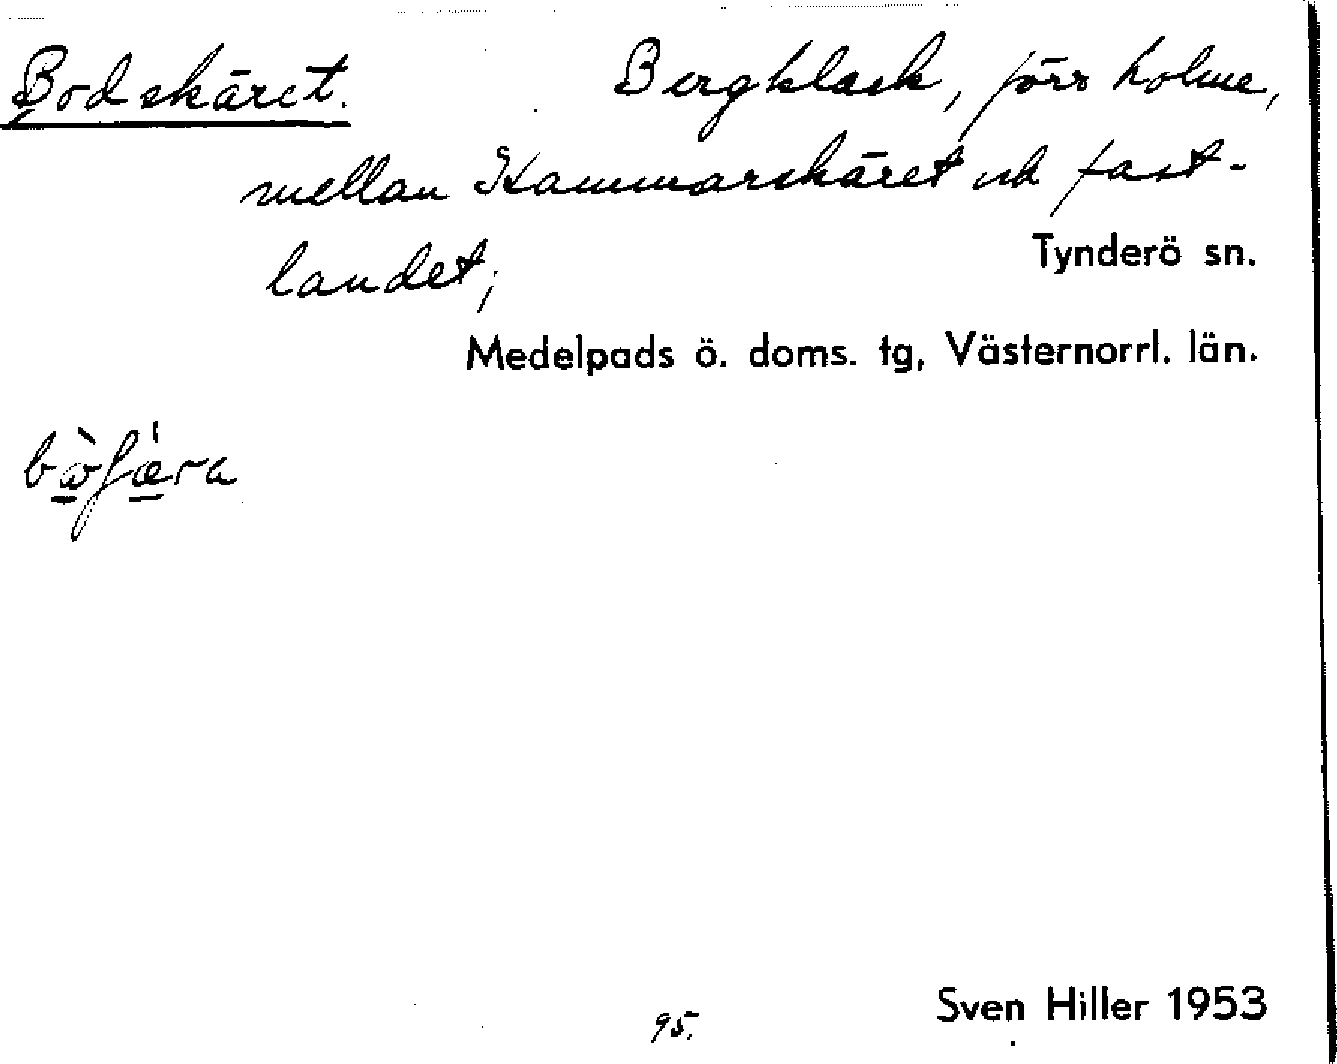 Bodskäret. Bergklack, förr holme,
mellan Hammarskäret och fast-
landet;
Tynderö sn.
Medelpads ö. doms. tg, Västernorrl. län.
Sven Hiller 1953
95.